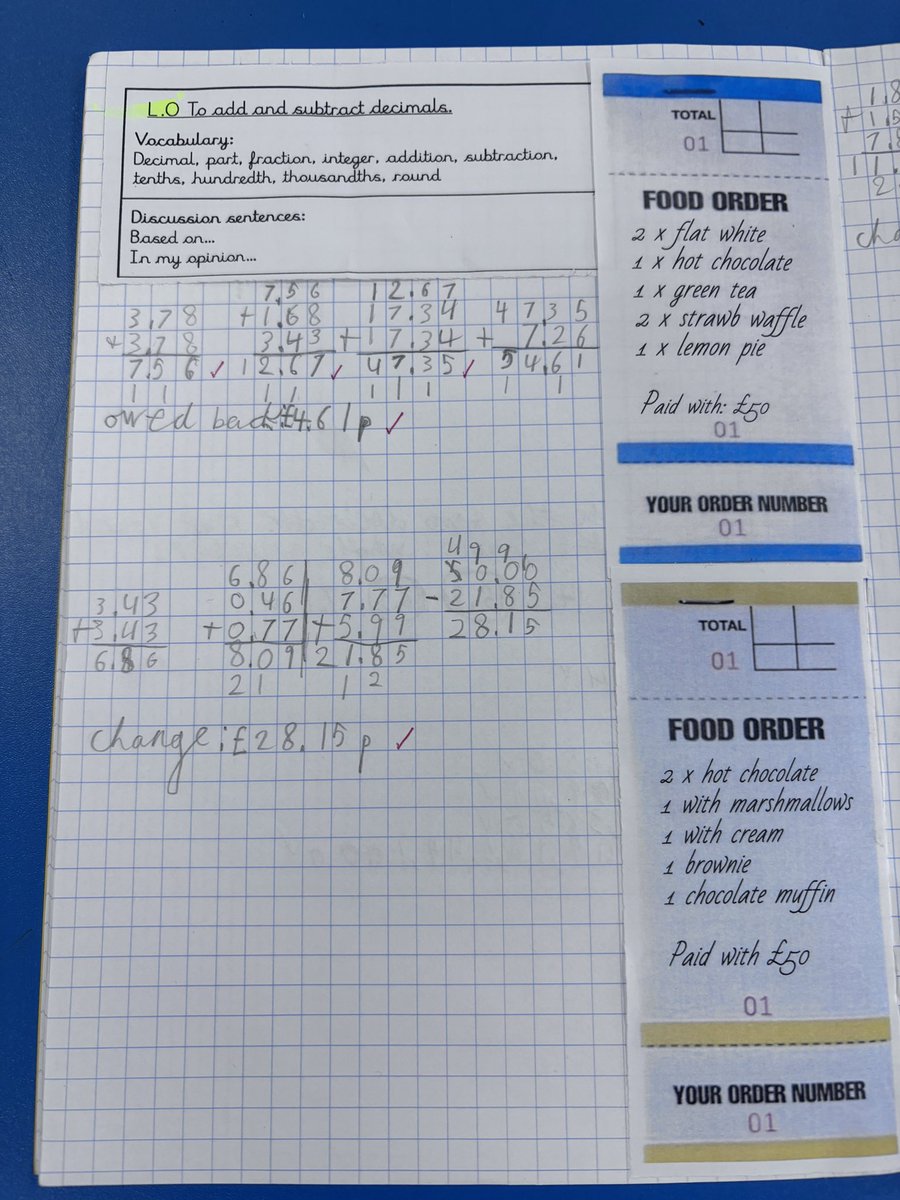 L.O To add and subtract decimals.
Vocabulary:
Decimal, part, fraction, integer, addition, subtraction,
tenths, hundredth, thousandths, round
Discussion sentences:
Based on...
In my opinion...
7.56 12.67
3.78 +1.68 17.34 47.35
+3.78 3.43 +17.34 + 7.26
7.56 ✓ 12.67 ✓ 47.35 ✓ 54.61
1 1 1 1 1 1 1 1 1
owed back £4.61p ✓
4 9 9
6.86 8.09 50.00
3.43 0.46 7.77 -21.85
+3.43 +0.77 +5.99 28.15
6.86 8.09 21.85
2 1 1 2
change: £28.15p ✓
TOTAL
01
FOOD ORDER
2 x flat white
1 x hot chocolate
1 x green tea
2 x strawb waffle
1 x lemon pie
Paid with: £50
01
YOUR ORDER NUMBER
01
TOTAL
01
FOOD ORDER
2 x hot chocolate
1 with marshmallows
1 with cream
1 brownie
1 chocolate muffin
Paid with £50
01
YOUR ORDER NUMBER
01